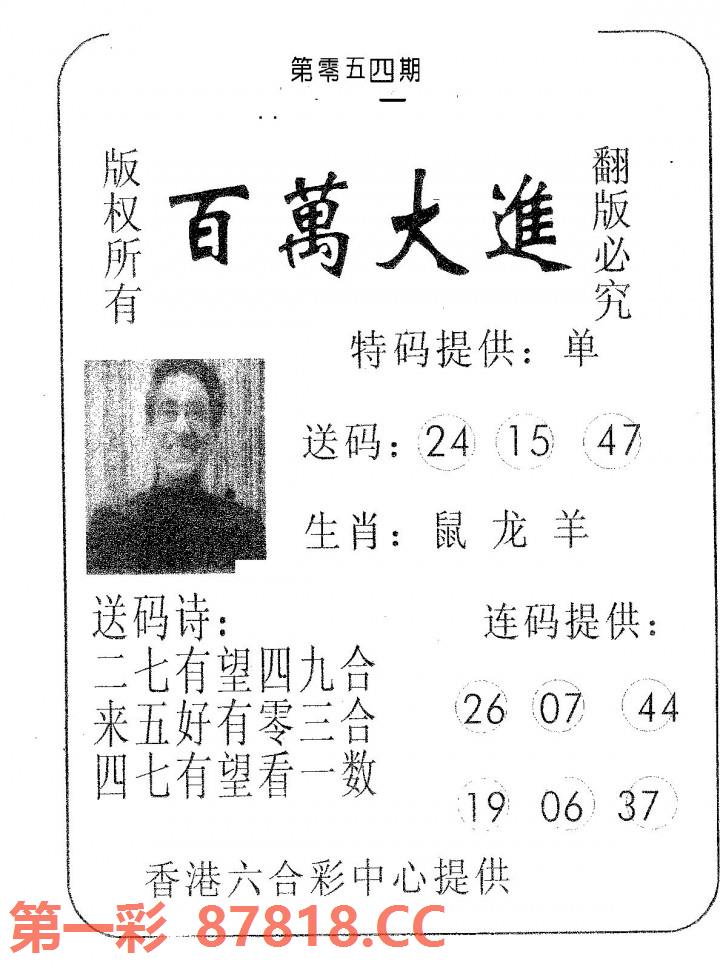 第零五四期
版权所有
百萬大進
翻版必究
特码提供：单
送码：24 15 47
生肖：鼠 龙 羊
送码诗：
二七有望四九合
来五好有零三合
四七有望看一数
连码提供：
26 07 44
19 06 37
香港六合彩中心提供
第一彩 87818.CC